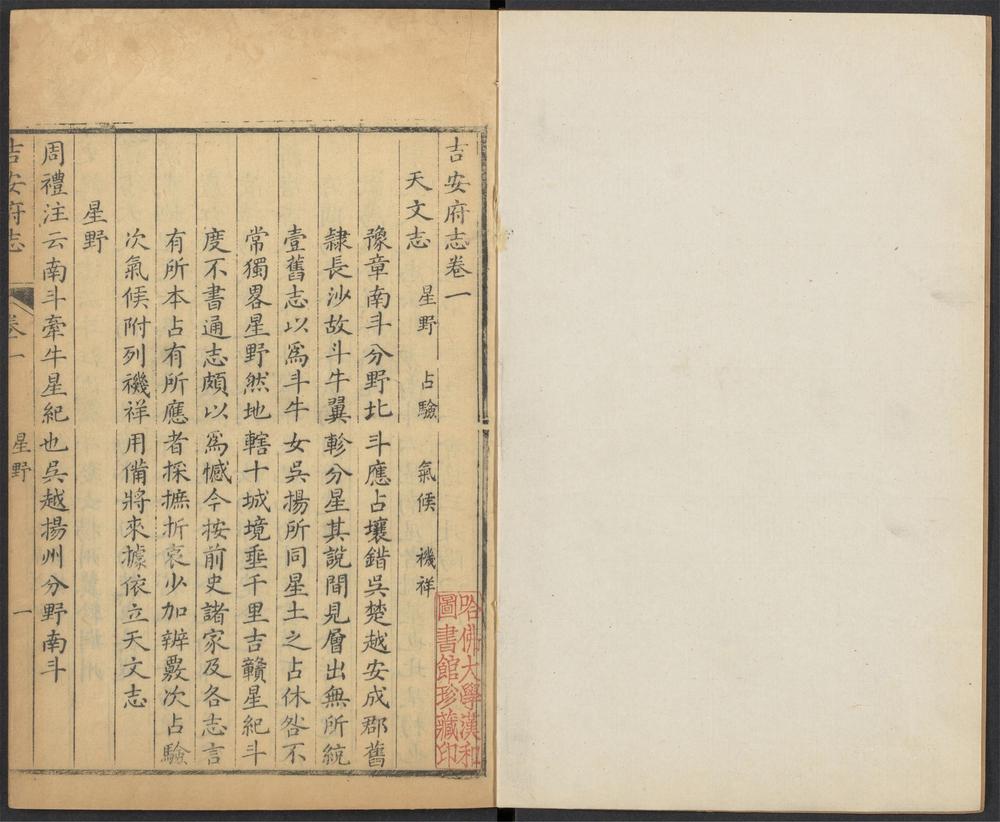 吉安府志卷一
天文志 星野 占驗 氣候 禨祥
豫章南斗分野北斗應占壤錯吳楚越安成郡舊
隷長沙故斗牛翼軫分星其說間見層出無所統
壹舊志以爲斗牛女吳揚所同星土之占休咎不
常獨畧星野然地轄十城境垂千里吉贛星紀斗
度不書通志頗以爲憾今按前史諸家及各志言
有所本占有所應者採摭折衷少加辨覈次占驗
次氣候附列禨祥用備將來據依立天文志
星野
周禮注云南斗牽牛星紀也吳越揚州分野南斗
吉安府志 卷一 星野 一
哈佛大學漢和
圖書館珍藏印